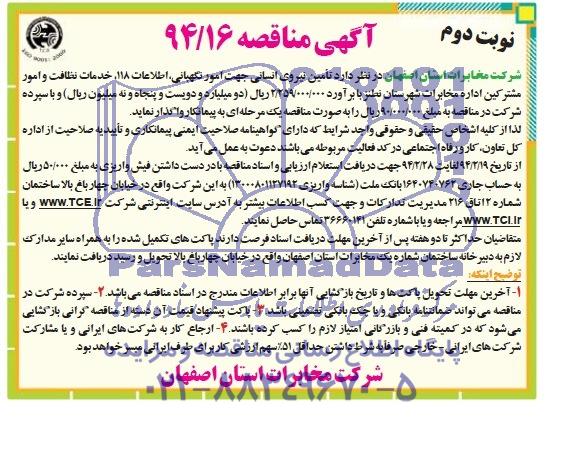 آگهی مناقصه ۹۴/۱۶
نوبت دوم
شرکت مخابرات استان اصفهان در نظر دارد تامین نیروی انسانی جهت امور نگهبانی، اطلاعات ۱۱۸، خدمات نظافت و امور
مشترکین اداره مخابرات شهرستان نطنز با برآورد ۲/۲۵۹/۰۰۰/۰۰۰ ریال (دو میلیارد و دویست و پنجاه و نه میلیون ریال) و با سپرده
شرکت در مناقصه به مبلغ ۹۰/۰۰۰/۰۰۰ ریال را به صورت مناقصه یک مرحله ای به پیمانکار واگذار نماید.
لذا از کلیه اشخاص حقیقی و حقوقی واجد شرایط که دارای گواهینامه صلاحیت ایمنی پیمانکاری و تأیید به صلاحیت از اداره
کل تعاون، کار و رفاه اجتماعی در کد فعالیت مربوطه می باشند دعوت به عمل می آید.
از تاریخ ۹۴/۲/۱۹ لغایت ۹۴/۲/۲۸ جهت دریافت استعلام ارزیابی و اسناد مناقصه با در دست داشتن فیش واریزی به مبلغ ۵۰/۰۰۰ ریال
به حساب جاری ۱۶۴۰۷۴۰۷۶۲ بانک ملت (شناسه واریزی ۱۳۰۰۰۸۰۱۱۲۷۱۹۲) به این شرکت واقع در خیابان چهارباغ بالا ساختمان
شماره ۲ اتاق ۲۱۶ مدیریت تدارکات و جهت کسب اطلاعات بیشتر به آدرس سایت اینترنتی شرکت WWW.TCE.ir و یا
WWW.TCI.ir مراجعه و یا با شماره تلفن ۳۶۶۶۰۱۴۱ تماس حاصل نمایند.
متقاضیان حداکثر تا دو هفته پس از آخرین مهلت دریافت اسناد فرصت دارند پاکت های تکمیل شده را به همراه سایر مدارک
لازم به دبیرخانه ساختمان شماره یک مخابرات استان اصفهان واقع در خیابان چهارباغ بالا تحویل و رسید دریافت نمایند.
توضیح اینکه:
۱- آخرین مهلت تحویل پاکت ها و تاریخ بازگشایی آنها برابر اطلاعات مندرج در اسناد مناقصه می باشد. ۲- سپرده شرکت در
مناقصه می تواند ضمانتنامه بانکی و یا چک بانکی تضمینی باشد. ۳- پاکت پیشنهاد قیمت آن دسته از مناقصه گرانی بازگشایی
می شود که در کمیته فنی و بازرگانی امتیاز لازم را کسب کرده باشند. ۴- ارجاع کار به شرکت های ایرانی و یا مشارکت
شرکت های ایرانی - خارجی صرفاً به شرط داشتن حداقل ۵۱٪ سهم ارزشی کار برای طرف ایرانی میسر خواهد بود.
شرکت مخابرات استان اصفهان
ParsNamadData
پایگاه اطلاع رسانی مناقصه و مزایده
۰۲۱-۸۸۳۴۹۶۷۰-۵